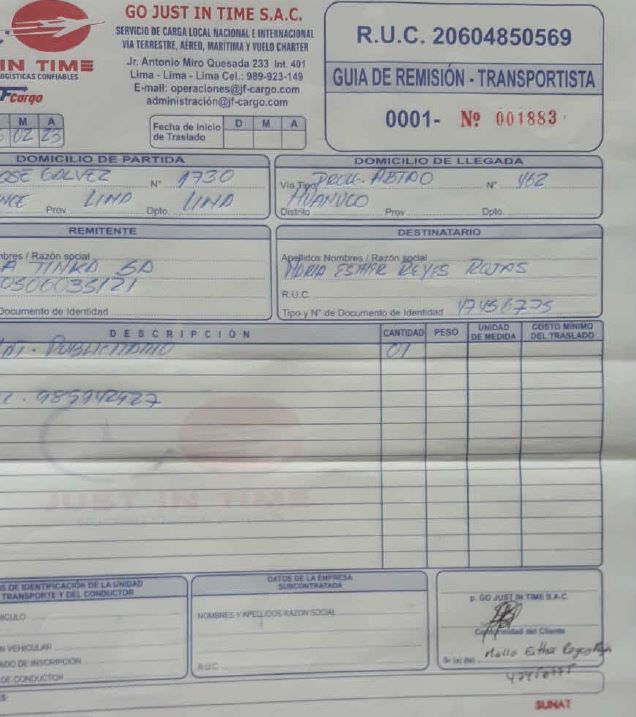 GO JUST IN TIME S.A.C.
SERVICIO DE CARGA LOCAL NACIONAL E INTERNACIONAL
VIA TERRESTRE, AEREO, MARÍTIMA Y VUELO CHARTER
Jr. Antonio Miro Quesada 233 Int. 401
Lima - Lima - Lima Cel.: 989-923-149
E-mail: operaciones@jf-cargo.com
administración@jf-cargo.com
IN TIME
OGÍSTICAS CONFIABLES
Cargo
R.U.C. 20604850569
GUIA DE REMISIÓN - TRANSPORTISTA
0001- Nº 001883
M A
02 23
Fecha de Inicio de Traslado D M A
DOMICILIO DE PARTIDA
OSE GALVEZ N° 1730
NCE Prov. LIMA Dpto. LIMA
DOMICILIO DE LLEGADA
Via Tipo PROLG. ABTAO N° 462
Distrito HUANUCO Prov. Dpto.
REMITENTE
mbres / Razón social
A TINKA SA
0500035121
Documento de Identidad
DESTINATARIO
Apellidos Nombres / Razón social
MARIA ESTHER REYES ROJAS
R.U.C.
Tipo y N° de Documento de Identidad 47456775
DESCRIPCIÓN CANTIDAD PESO UNIDAD DE MEDIDA COSTO MÍNIMO DEL TRASLADO
PUBLICITARIO 01
985942427
JUST IN TIME
S DE IDENTIFICACIÓN DE LA UNIDAD
TRANSPORTE Y DEL CONDUCTOR
HICULO
N VEHICULAR
ADO DE INSCRIPCIÓN
DE CONDUCTOR
DATOS DE LA EMPRESA
SUBCONTRATADA
NOMBRES Y APELLIDOS RAZON SOCIAL
R.U.C.
p. GO JUST IN TIME S.A.C.
Conformidad del Cliente
SUNAT